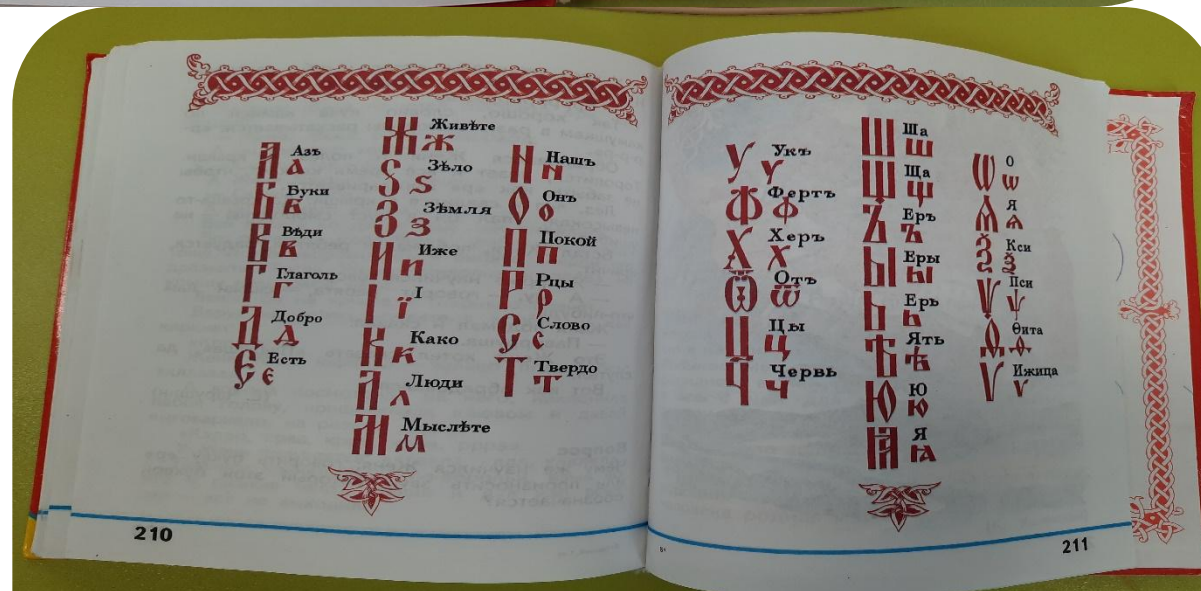 А Азъ а
Б Буки б
В Вѣди в
Г Глаголь г
Д Добро д
Є Есть є
Ж Живѣте ж
Ѕ Зѣло ѕ
З Зѣмля з
И Иже и
І І ї
К Како к
Л Люди л
М Мыслѣте м
N Нашъ н
О Онъ о
П Покой п
Р Рцы р
С Слово с
Т Твердо т
210
У Укъ у
Ф Фертъ ф
Х Херъ х
Ѿ Отъ ѿ
Ц Цы ц
Ч Червь ч
Ш Ша ш
Щ Ща щ
Ъ Еръ ъ
Ы Еры ы
Ь Ерь ь
Ѣ Ять ѣ
Ю Ю ю
Ꙗ Я ꙗ
Ѡ О ѡ
Ѧ Я ѧ
Ѯ Кси ѯ
Ѱ Пси ѱ
Ѳ Ѳита ѳ
Ѵ Ижица ѵ
211